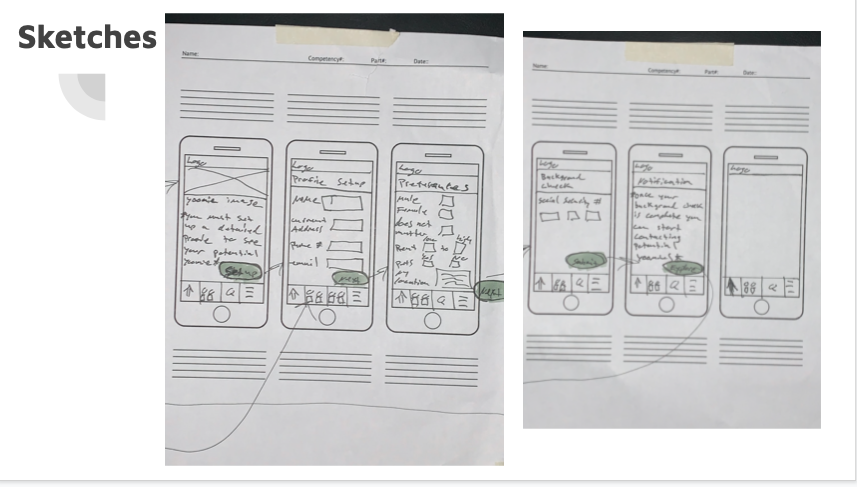 Sketches
Name:
Competency#: Part#: Date:
Logo
*you must set
up a detailed
profile to see
your potential
Setup
Logo
Profile Setup
Name
current
Address
Phone #
email
Next
Logo
Preferences
Male
Female
does not
matter
Rent low to high
pets Yes No
my
location
Next
Name:
Competency#: Part#: Date:
Logo
Background
check
Social Security #
Submit
Logo
Notification
*once your
background check
is complete you
can start
contacting
potential
Logo